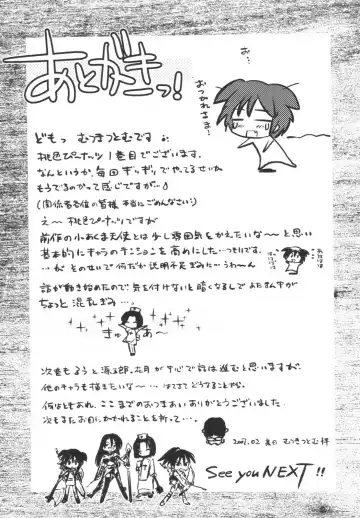 あとがきっ!
む…
おつかれさま…
どもっ むつきつとむです
桃色ぴーナッツ 1巻目でございます。
なんというか、毎回ギリギリでやってるせいか
もうでるのかって感じですが…
(関係者各位の皆様、本当にごめんなさい:)
え〜 桃色ぴーナッツですが
前作の小あくま天使とは少し雰囲気をかえたいな〜と思い
基本的にキャラのテンションを高めにした…つもりです。
…が そのせいで何だか説明不足ぎみに…うわーん
話が動き始めたので 気を付けないと暗くなるし
ちょっと混乱ぎみ…。
きゅ あ〜
次巻もるうと源五郎、花月が中心で話は進むと思いますが、
他のキャラも描きたいな〜… はてさてどうなることやら。
何はともあれ、ここまでのおつきあいありがとうございました
次もまたお目にかかれることを祈って…。
2007.02 むつきつとむ 拝
See you NEXT!!